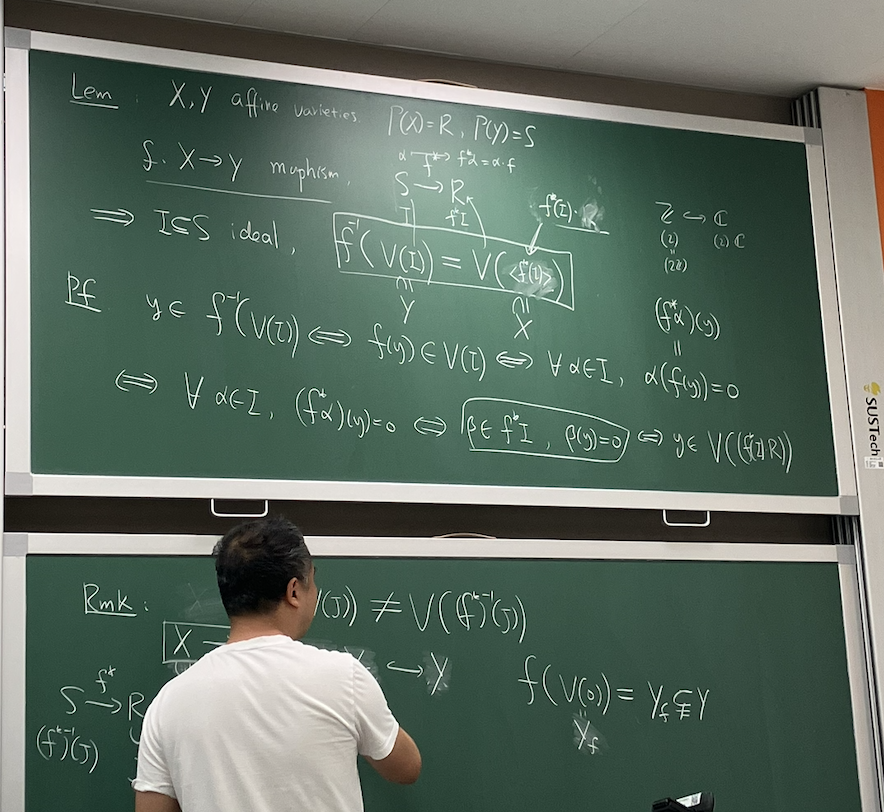 Lem : X, Y affine varieties. P(X)=R, P(Y)=S
f: X→Y morphism,
α ↦ f*α = α·f
f*
S → R
I f*I
f*(I)·R
⇒ I⊆S ideal, f⁻¹(V(I)) = V(<f*(I)>)
Y X
Z ↪ C
(2) (2)C
(2Z)
Pf y ∈ f⁻¹(V(I)) ⇔ f(y) ∈ V(I) ⇔ ∀ α∈I, α(f(y))=0
(f*α)(y)
⇔ ∀ α∈I, (f*α)(y)=0 ⇔ β∈f*I, β(y)=0 ⇔ y∈ V((f*I)R))
SUSTech
Rmk : (J)) ≠ V((f*)⁻¹(J))
X ↪ Y
S →f* R
(f*)⁻¹(J)
f(V(0)) = Y_f ⊊ Y
Y_f